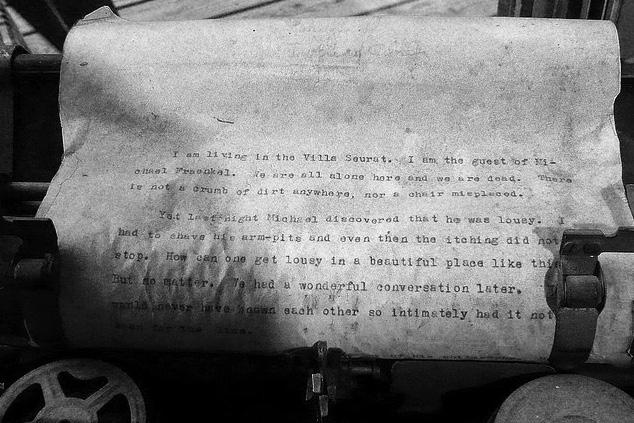 I am living in the Villa Seurat. I am the guest of Mi-
chael Fraenkel. We are all alone here and we are dead. There
is not a crumb of dirt anywhere, nor a chair misplaced.
Yet last night Michael discovered that he was lousy. I
had to shave his arm-pits and even then the itching did not
stop. How can one get lousy in a beautiful place like this
But no matter. We had a wonderful conversation later.
would never have known each other so intimately had it not
been for the lice.